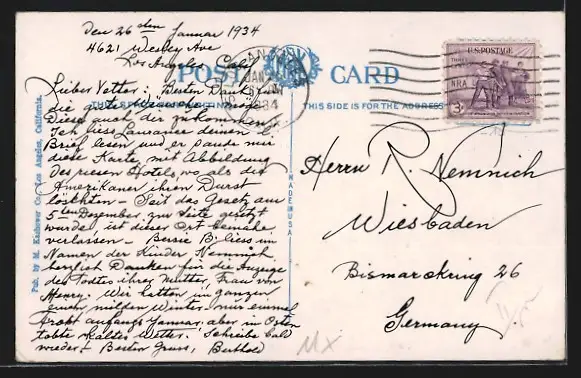 Den 26sten Januar 1934
4621 Wesley Ave
Los Angeles Calif
POST CARD
THIS SIDE IS FOR THE ADDRESS
U.S. POSTAGE
NRA
3¢
JAN
1934
Lieber Vetter: Besten Dank für
die gute Wünsche
Diese auch der zukommen.
Ich liess Laurance deinen l.
Brief lesen und er sande mir
diese Karte, mit Abbildung
des riesen Hotels, wo all die
Amerikaner ihren Durst
löschten – Seit das Gesetz am
5ten Dezember zur Seite gesetzt
wurde, ist dieser Ort beinahe
verlassen – B. liess im
Namen der Kinder Nemnich
herzlich Danken für die Anzeige
des Todtes ihrer Mutter, Frau von
Henry. Wir hatten im ganzen
einen milden Winter nur einmal
Frost anfangs Januar, aber im Osten
tobte kaltes Wetter. Schreibe bald
wieder – Besten Gruss, Berthold
Herrn R. Nemnich
Wiesbaden
Bismarckring 26
Germany
MADE IN USA
Pub. by M. Kashower Co., Los Angeles, California.